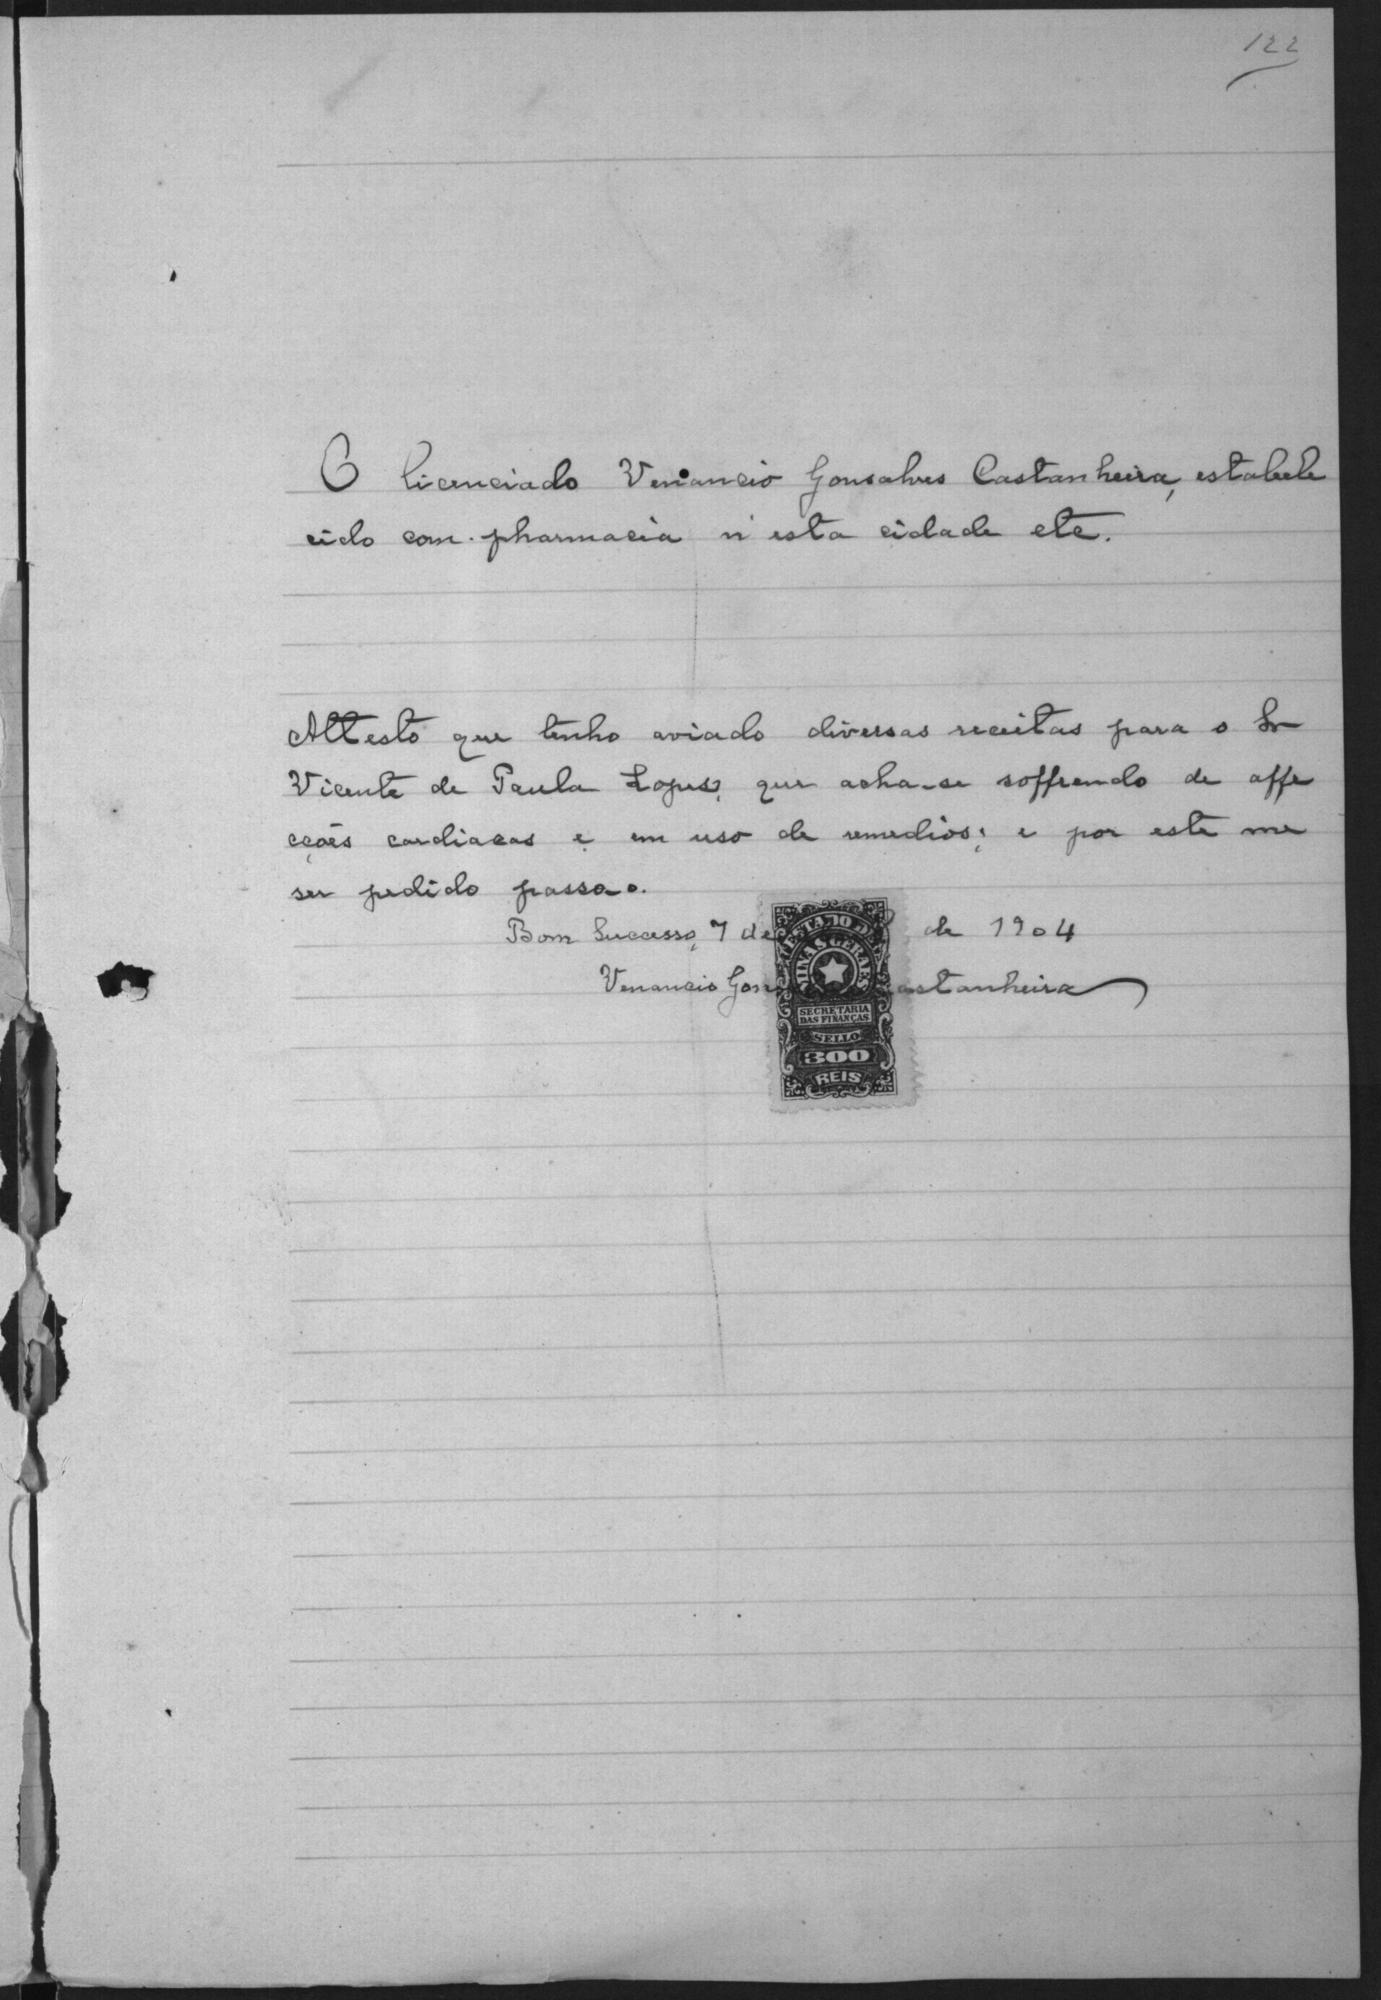 122
O licenciado Venancio Gonsalves Castanheira, estabele
cido com pharmacia n'esta cidade etc.
Attesto que tenho aviado diversas receitas para o Sr
Vicente de Paula Lopes, que acha-se soffrendo de affe
cções cardiacas e em uso de remedios; e por este me
ser pedido passo o.
Bom Successo, 7 de de 1904
Venancio Gons astanheira
ESTADO DE
MINAS GERAES
SECRETARIA
DAS FINANÇAS
SELLO
300
REIS